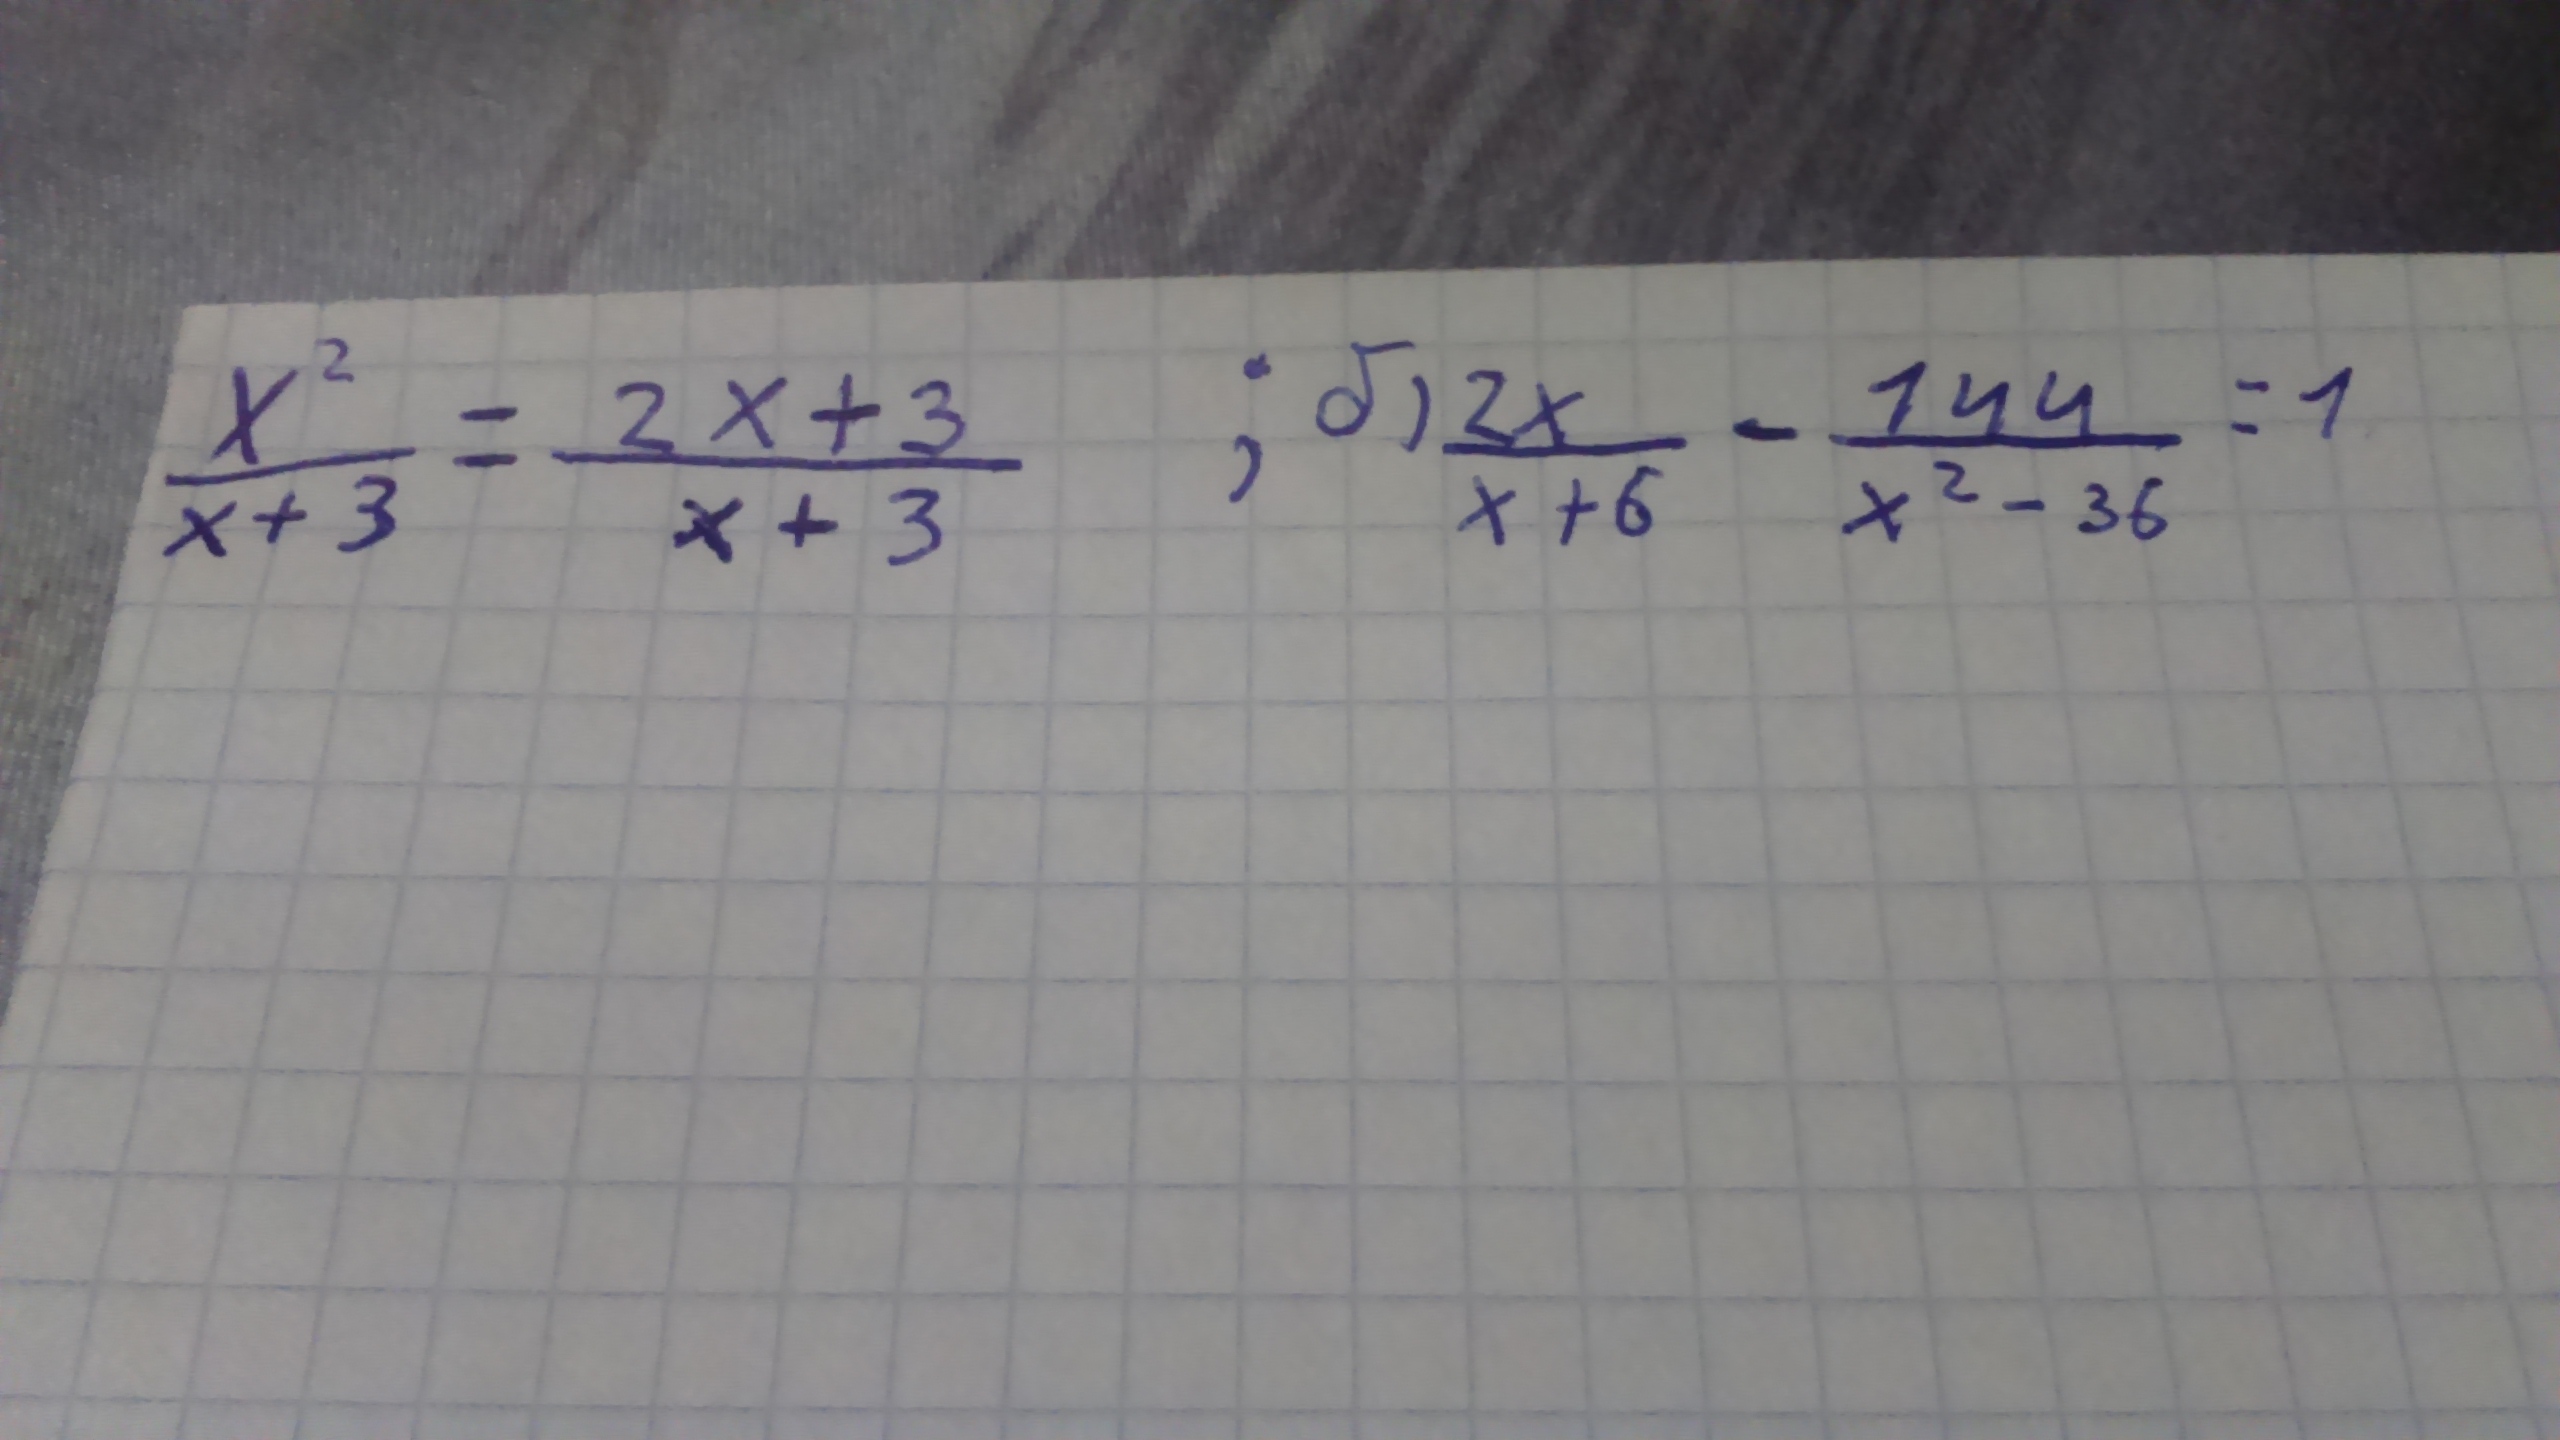 x²/(x+3) = (2x+3)/(x+3) ; б) 2x/(x+6) - 144/(x²-36) = 1